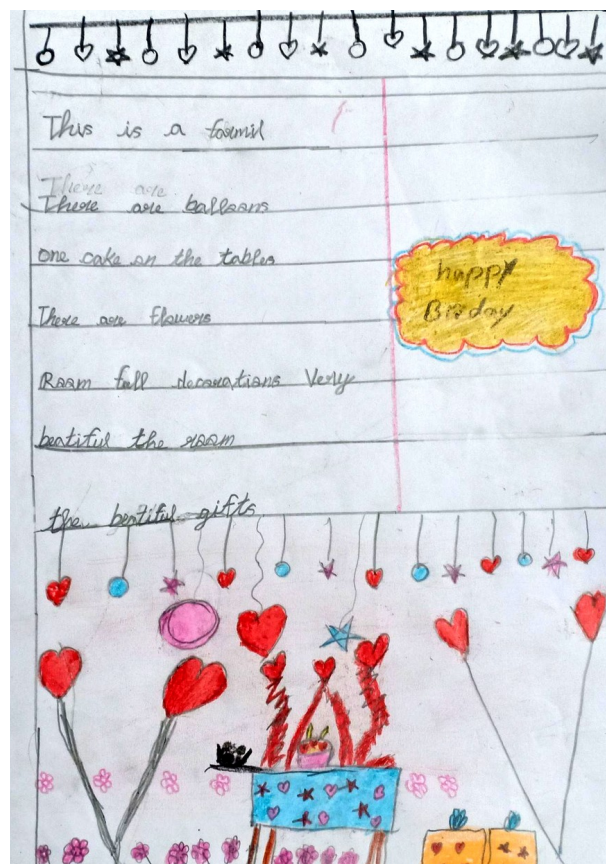 This is a famil
There are
There are balloons
one cake on the tables
There are flowers
Room full decorations Very
beatiful the room
the beatiful gifts
happy
Birday